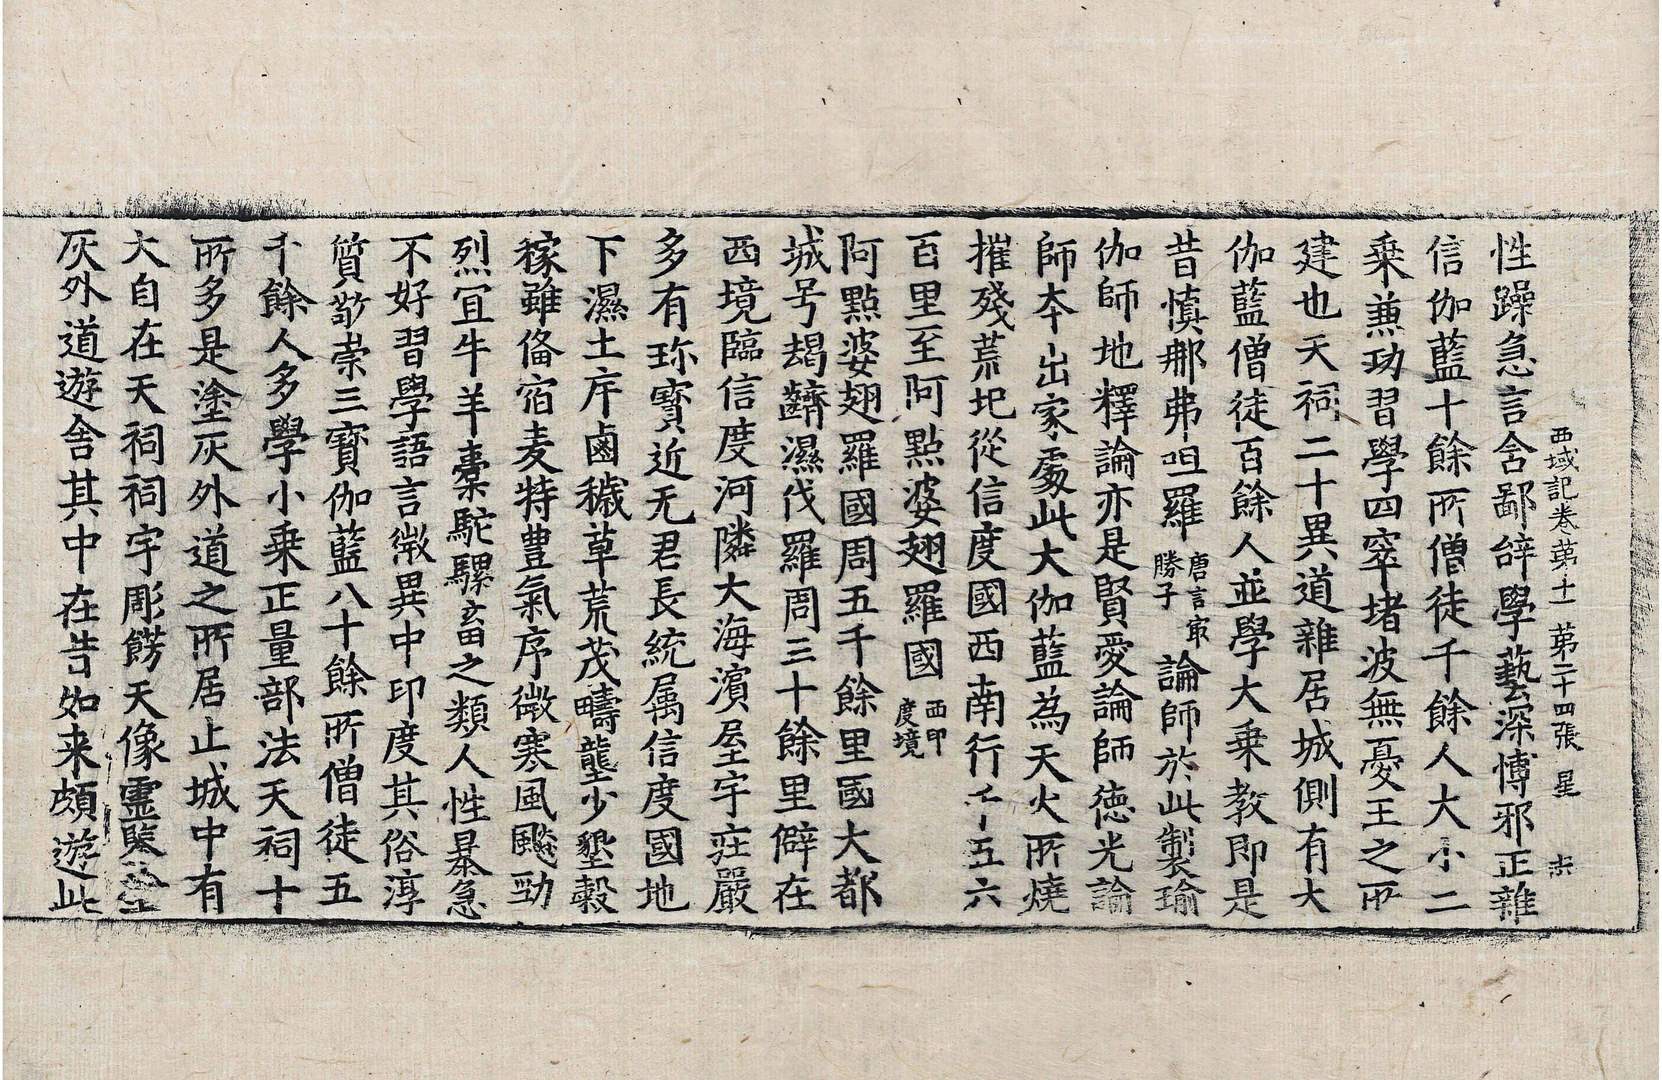 西域記卷第十一 第二十四張 星
性躁急言含鄙辞學藝深博邪正雜
信伽藍十餘所僧徒千餘人大小二
乗兼功習學四窣堵波無憂王之所
建也天祠二十異道雜居城側有大
伽藍僧徒百餘人並學大乗教即是
昔慎那弗呾羅唐言㝡勝子論師於此製瑜
伽師地釋論亦是賢愛論師德光論
師夲出家處此大伽藍為天火所燒
摧殘荒圮從信度國西南行千五六
百里至阿點婆翅羅國西印度境
阿點婆翅羅國周五千餘里國大都
城号朅䶩濕伐羅周三十餘里僻在
西境臨信度河隣大海濱屋宇莊嚴
多有珎寶近无君長統属信度國地
下濕土斥鹵穢草荒茂疇壟少墾穀
稼雖俻宿麦特豊氣序微寒風飈勁
烈冝牛羊橐駝騾畜之類人性暴急
不好習學語言微異中印度其俗淳
質敬崇三寶伽藍八十餘所僧徒五
千餘人多學小乗正量部法天祠十
所多是塗灰外道之所居止城中有
大自在天祠祠宇彫餝天像靈鑒塗
灰外道遊舍其中在昔如来頗遊此